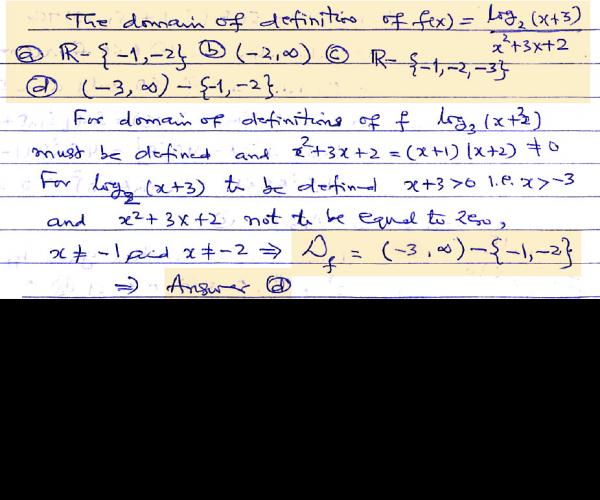 The domain of definition of f(x) = log₂(x+3) / x²+3x+2
ⓐ R- {-1,-2} ⓑ (-2,∞) ⓒ R- {-1,-2,-3}
ⓓ (-3, ∞) - {-1,-2}.
For domain of definitions of f log₂(x+3)
must be defined and x²+3x+2 = (x+1)(x+2) ≠0
For log₂(x+3) to be defined x+3>0 i.e. x>-3
and x²+3x+2 not to be equal to zero,
x ≠ -1 and x ≠ -2 ⇒ D_f = (-3, ∞) - {-1,-2}
⇒ Answer ⓓ